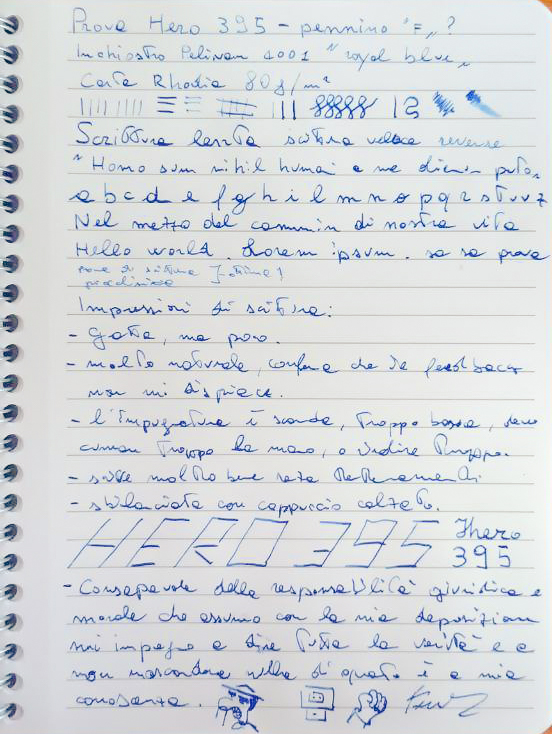 Prova Hero 395 - pennino "F" ?
Inchiostro Pelikan 4001 "royal blue"
Carta Rhodia 80 g/m²
Scrittura lenta scrittura veloce reverse
"Homo sum nihil humani a me alienum puto"
a b c d e f g h i l m n o p q r s t u v z
Nel mezzo del cammin di nostra vita
Hello world. Lorem ipsum. sa sa prova
prova di scrittura
Impressioni di scrittura:
- Gratta, ma poco.
- molto naturale, conferma che il feedback
non mi dispiace.
- l'impugnatura è scomoda, troppo bassa, devo
curvare troppo la mano, o
- scrive molto bene senza tentennamenti
- sbilanciata con cappuccio calzato.
HERO 395 Hero
395
- Consapevole della responsabilità giuridica e
morale che assumo con la mia deposizione
mi impegno a dire tutta la verità e a
non nascondere nulla di quanto è a mia
conoscenza.